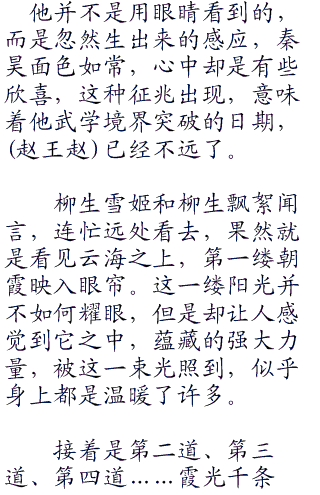 他并不是用眼睛看到的，
而是忽然生出来的感应，秦
昊面色如常，心中却是有些
欣喜，这种征兆出现，意味
着他武学境界突破的日期，
(赵王赵)已经不远了。
柳生雪姬和柳生飘絮闻
言，连忙远处看去，果然就
是看见云海之上，第一缕朝
霞映入眼帘。这一缕阳光并
不如何耀眼，但是却让人感
觉到它之中，蕴藏的强大力
量，被这一束光照到，似乎
身上都是温暖了许多。
接着是第二道、第三
道、第四道……霞光千条